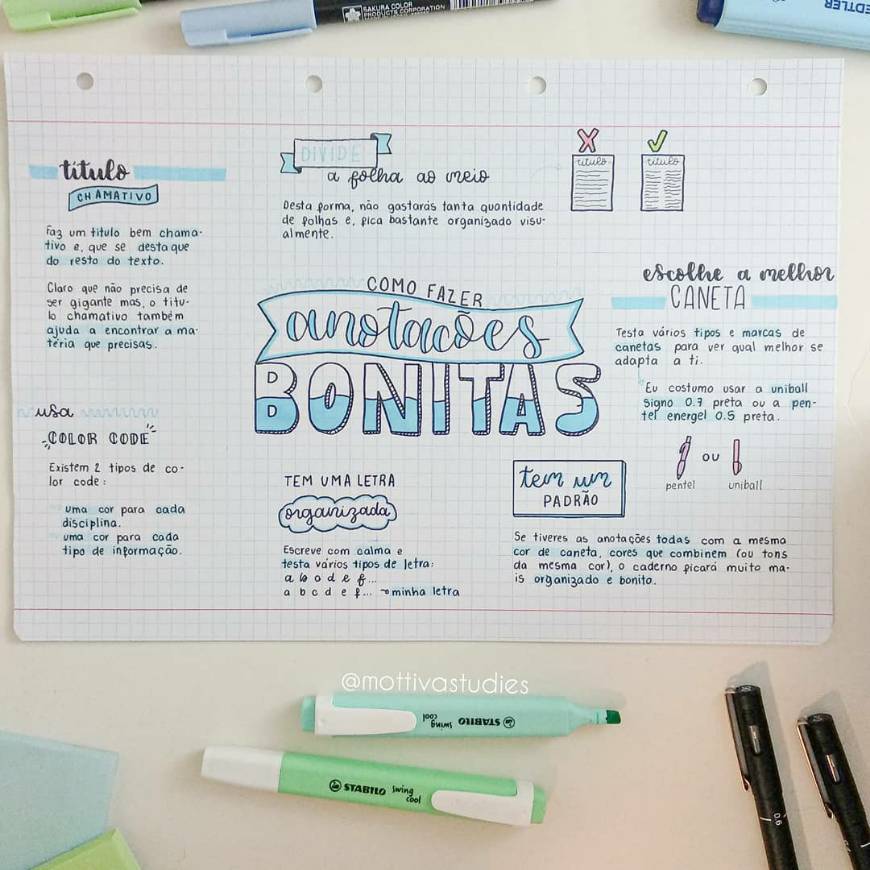 SAKURA COLOR
PRODUCTS CORPORATION
STAEDTLER
título
CHAMATIVO
Faz um título bem chama-
tivo e, que se destaque
do resto do texto.
Claro que não precisa de
ser gigante mas, o títu-
lo chamativo também
ajuda a encontrar a ma-
téria que precisas.
DIVIDE
a folha ao meio
Desta forma, não gastarás tanta quantidade
de folhas e, fica bastante organizado visu-
almente.
título
título
COMO FAZER
anotações
BONITAS
escolhe a melhor
CANETA
Testa vários tipos e marcas de
canetas para ver qual melhor se
adapta a ti.
Eu costumo usar a uniball
signo 0.7 preta ou a pen-
tel energel 0.5 preta.
OU
pentel uniball
usa
COLOR CODE
Existem 2 tipos de co-
lor code:
uma cor para cada
disciplina.
uma cor para cada
tipo de informação.
TEM UMA LETRA
organizada
Escreve com calma e
testa vários tipos de letra:
a b c d e f...
a b c d e f... → minha letra
tem um
PADRÃO
Se tiveres as anotações todas com a mesma
cor de caneta, cores que combinem (ou tons
da mesma cor), o caderno ficará muito ma-
is organizado e bonito.
@mottivastudies
STABILO swing
cool
STABILO swing
cool
0.6